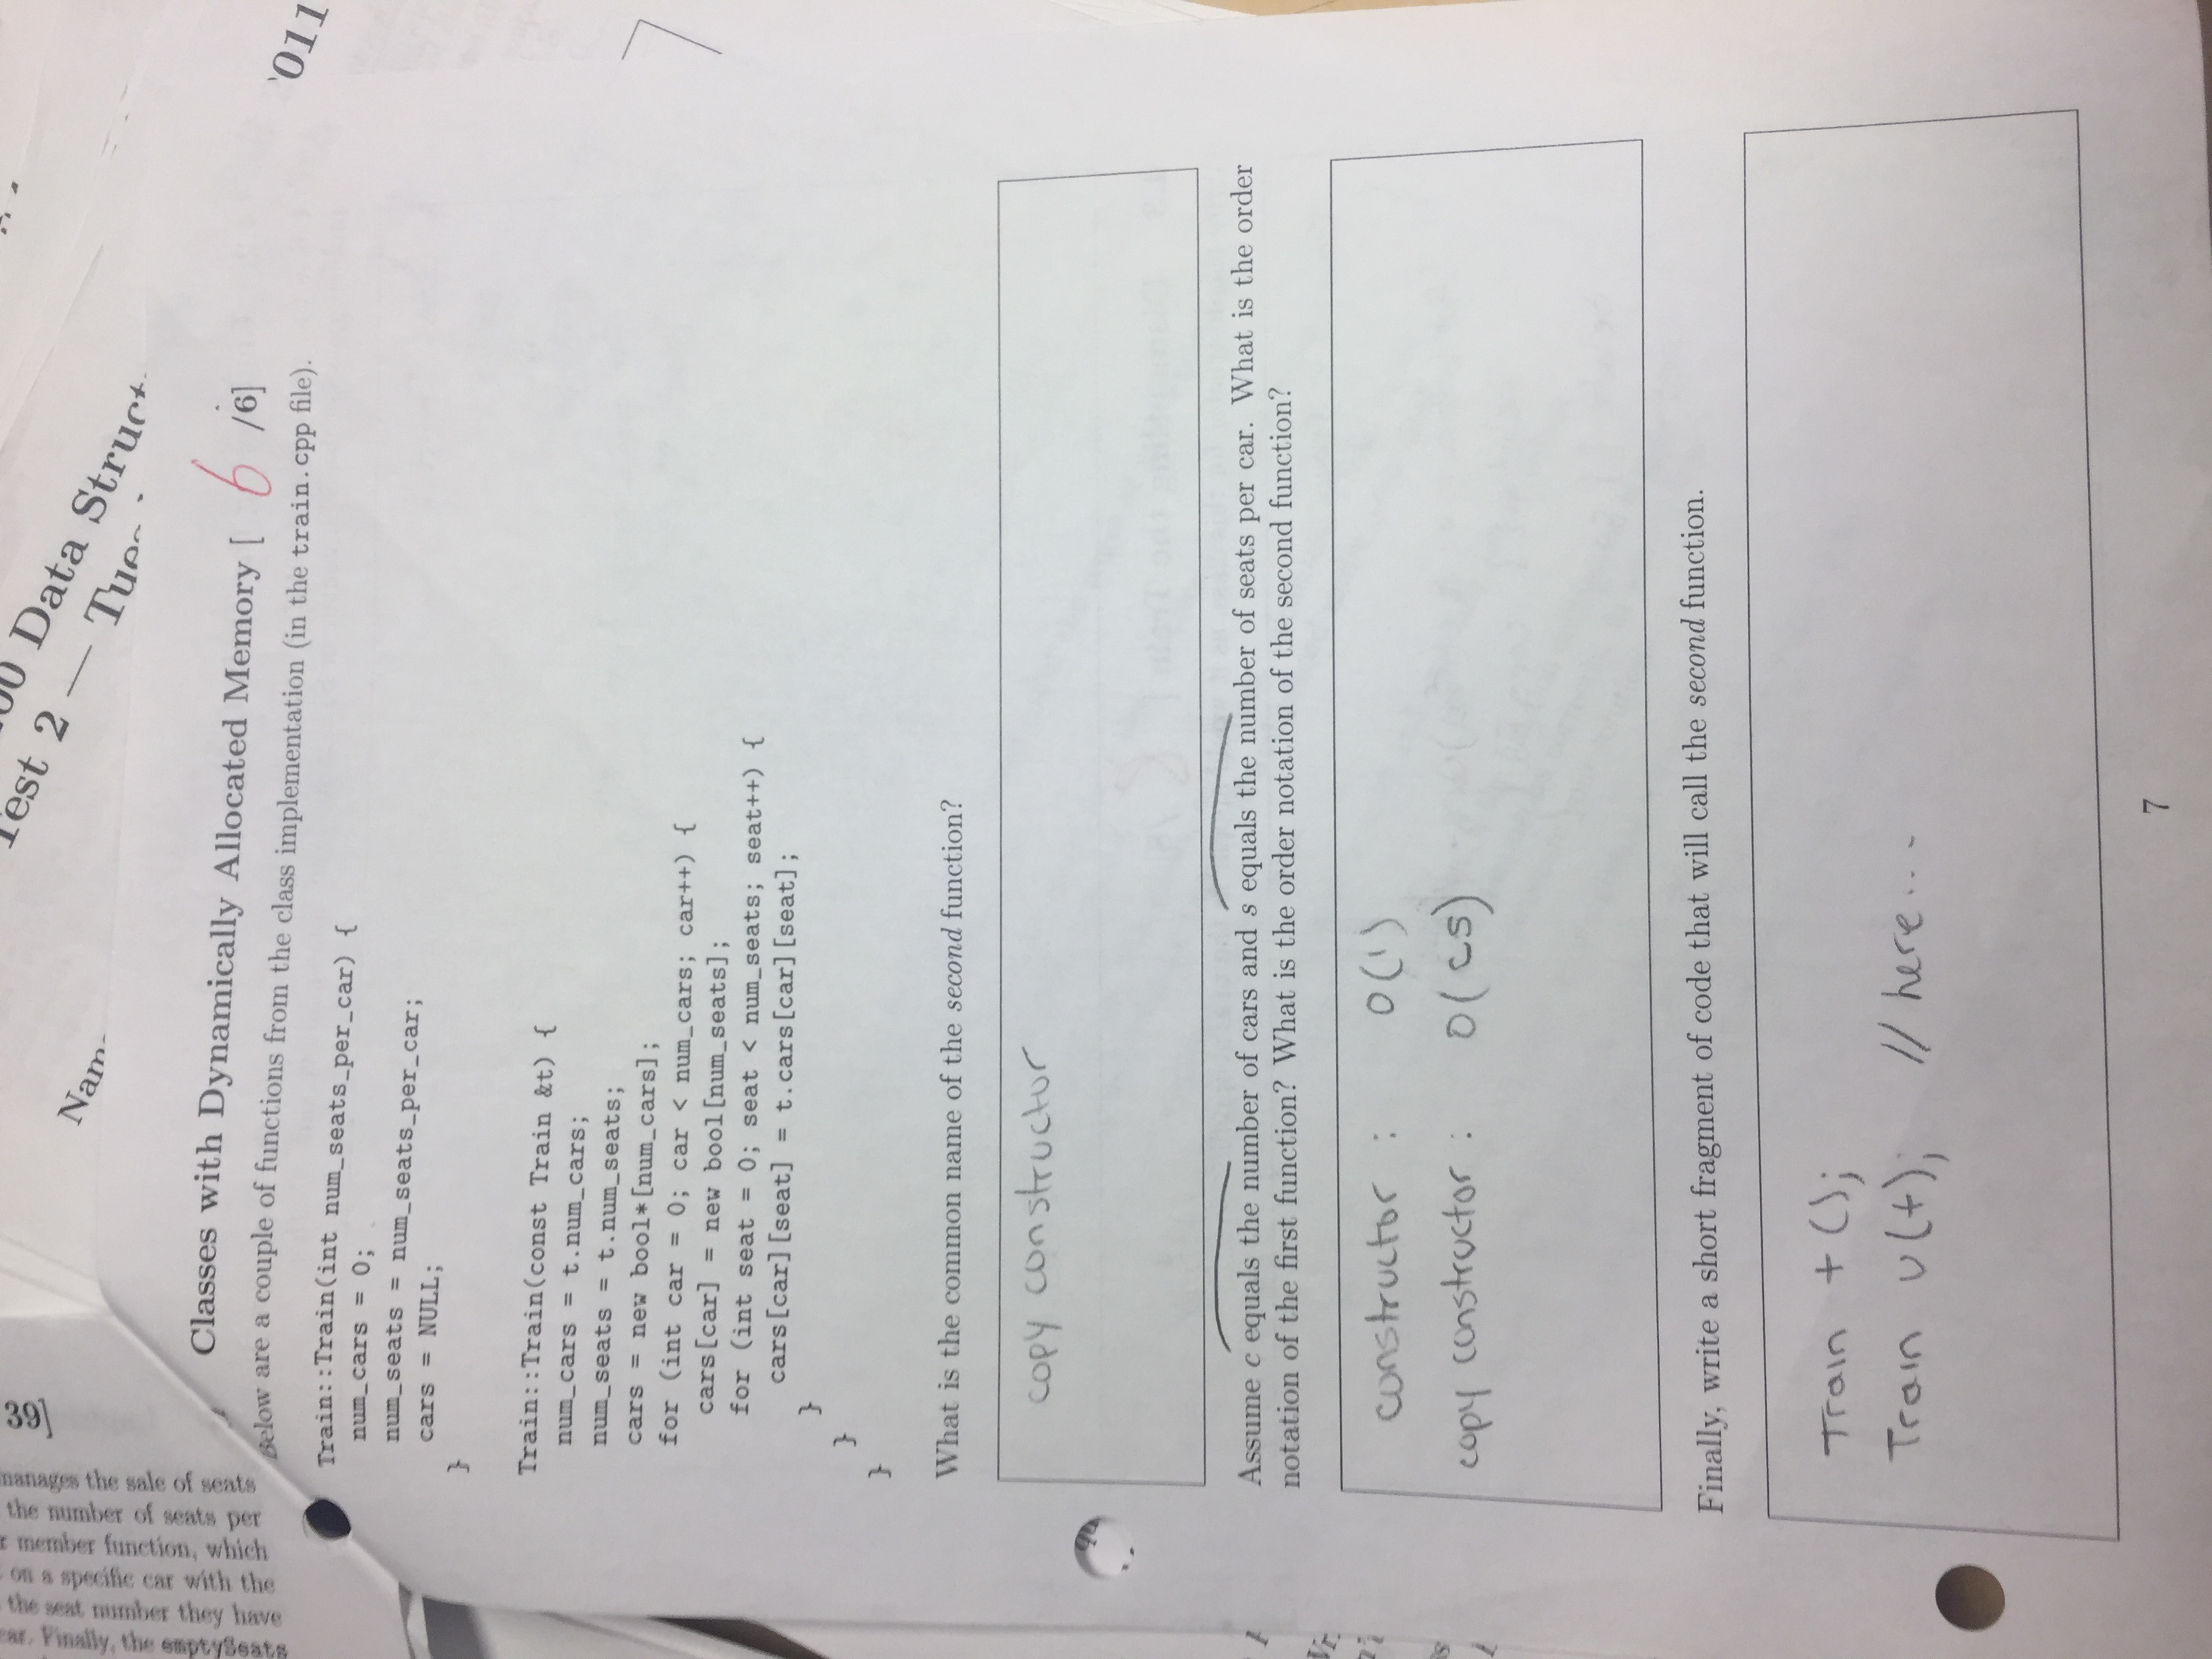 39]
manages the sale of seats
the number of seats per
member function, which
on a specific car with the
the seat number they have
Finally, the emptySeats
00 Data Struct
Test 2 — Tues
Nam
Classes with Dynamically Allocated Memory [ 6 /6]
Below are a couple of functions from the class implementation (in the train.cpp file).
'011
Train::Train(int num_seats_per_car) {
num_cars = 0;
num_seats = num_seats_per_car;
cars = NULL;
}
Train::Train(const Train &t) {
num_cars = t.num_cars;
num_seats = t.num_seats;
cars = new bool*[num_cars];
for (int car = 0; car < num_cars; car++) {
cars[car] = new bool[num_seats];
for (int seat = 0; seat < num_seats; seat++) {
cars[car][seat] = t.cars[car][seat];
}
}
}
What is the common name of the second function?
copy constructor
Assume c equals the number of cars and s equals the number of seats per car. What is the order
notation of the first function? What is the order notation of the second function?
constructor : O(1)
copy constructor : O(cs)
Finally, write a short fragment of code that will call the second function.
Train t();
Train u(t); // here...
7